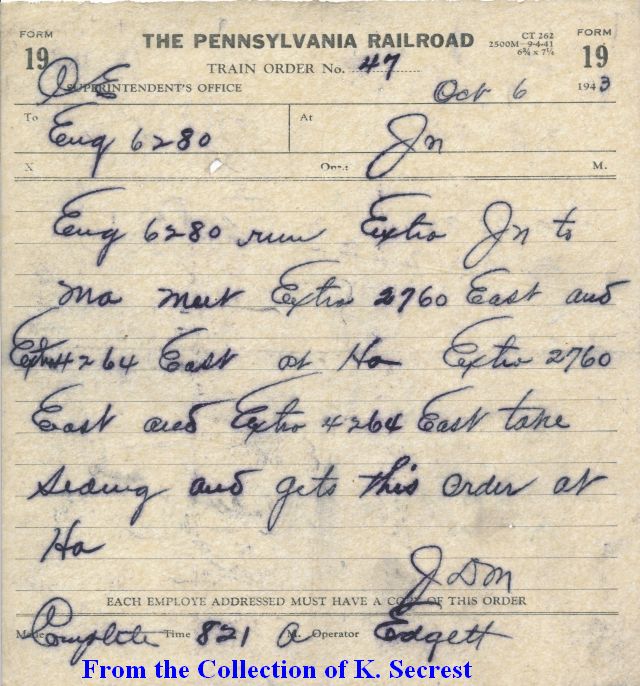 FORM 19 THE PENNSYLVANIA RAILROAD CT 262 2500M—9-4-41 6¾ x 7¼ FORM 19
TRAIN ORDER No. 47
SUPERINTENDENT'S OFFICE Oct 6 1943
To Eng 6280 At Jn
X Opr.: M.
Eng 6280 run Extra Jn to
Ma meet Extra 2760 East and
Extra 4264 East at Ho Extra 2760
East and Extra 4264 East take
siding and gets this order at
Ho
J D M
EACH EMPLOYE ADDRESSED MUST HAVE A COPY OF THIS ORDER
Made Complete Time 821 a M. Operator Edgett
From the Collection of K. Secrest